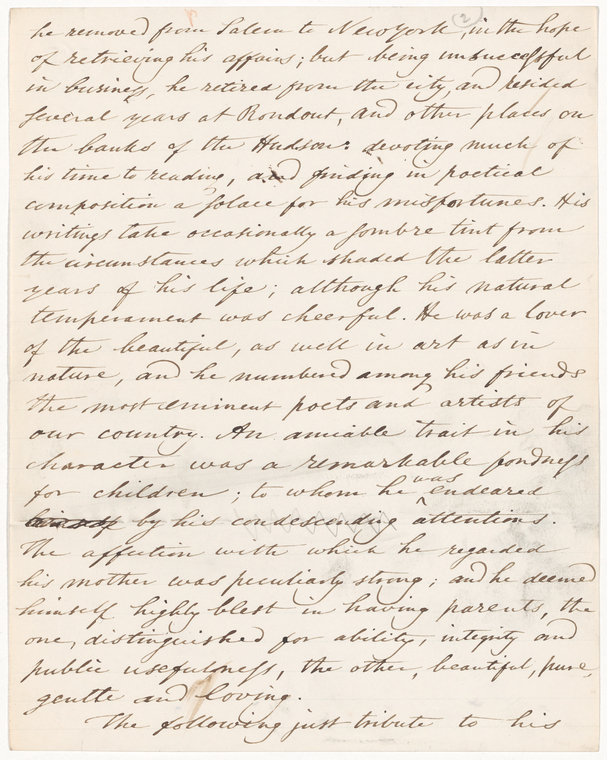 (2)
he removed from Salem to New York, in the hope
of retrieving his affairs; but being unsuccessful
in business, he retired from the city, and resided
several years at Rondout, and other places on
the banks of the Hudson: devoting much of
his time to reading, and finding in poetical
composition a solace for his misfortunes. His
writings take occasionally a sombre tint from
the circumstances which shaded the latter
years of his life; although his natural
temperament was cheerful. He was a lover
of the beautiful, as well in art as in
nature, and he numbered among his friends
the most eminent poets and artists of
our country. An amiable trait in his
character was a remarkable fondness
for children; to whom he was endeared
by his condescending attentions.
The affection with which he regarded
his mother was peculiarly strong; and he deemed
himself highly blest in having parents, the
one, distinguished for ability, integrity and
public usefulness, the other, beautiful, pure,
gentle and loving.
The following just tribute to his